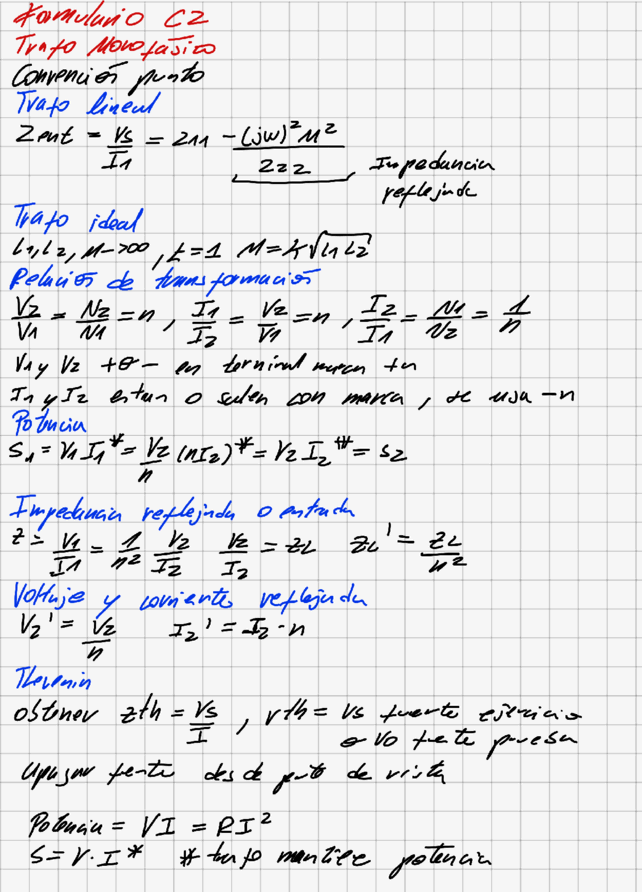 Formulario C2
Trafo Monofásico
Convención punto
Trafo lineal
Zent = Vs/I1 = Z11 - (jw)²M²/Z22 , Impedancia
reflejada
Trafo ideal
L1, L2, M->∞ , k=1 M=k√(L1 L2)
Relación de transformación
V2/V1 = N2/N1 = n , I1/I2 = V2/V1 = n , I2/I1 = N1/N2 = 1/n
V1 y V2 + o - en terminal marca +n
I1 y I2 entran o salen con marca , se usa -n
Potencia
S1 = V1 I1* = V2/n (nI2)* = V2 I2* = S2
Impedancia reflejada o entrada
Z = V1/I1 = 1/n² V2/I2 V2/I2 = ZL ZL' = ZL/n²
Voltaje y corriente reflejada
V2' = V2/n I2' = I2·n
Thevenin
obtener Zth = Vs/I , Vth = Vs fuente ejercicio
o Vo fuente prueba
Apagar fuente desde punto de vista
Potencia = VI = RI²
S = V·I* # trafo mantiene potencia